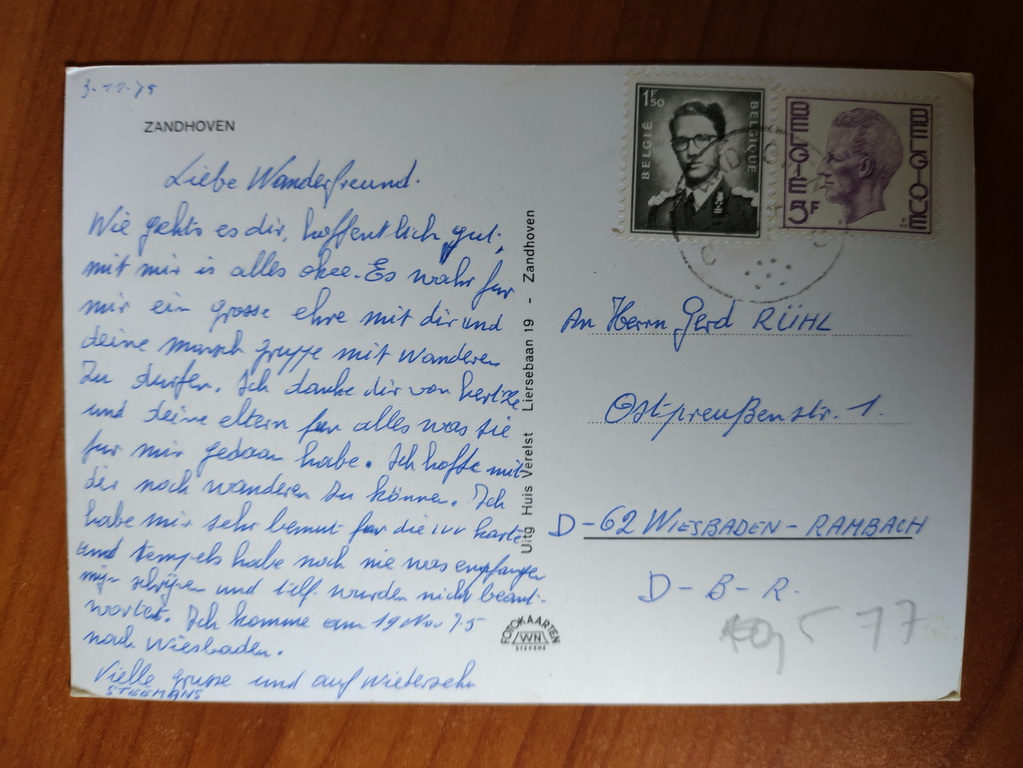 ZANDHOVEN
Liebe Wanderfreund.
Wie gehts es dir, hoffentlich gut,
mit mir is alles okee. Es wahr fur
mir ein grosse ehre mit dir und
deine marsch gruppe mit wanderen
zu durfen. Ich danke dir von hertze
und deine eltern fur alles was sie
fur mir gedaan habe. Ich hoffe mit
dir noch wanderen zu können. Ich
habe mir sehr bemut fur die ivv karte
und tempels habe noch nie was empfangen
mijn schrijven und telf. wurden nicht beant-
wortet. Ich komme am 19 Nov 75
nach Wiesbaden.
Vielle grusse und auf wietersehn
STEEMANS
Uitg Huis Verelst Liersebaan 19 - Zandhoven
1F50
BELGIË
BELGIQUE
BELGIE
5F
BELGIQUE
An Herrn Gerd RÜHL
Ostpreußenstr. 1.
D-62 WIESBADEN-RAMBACH
D-B-R.
FOTOKAARTEN
WN
STEKENE
77